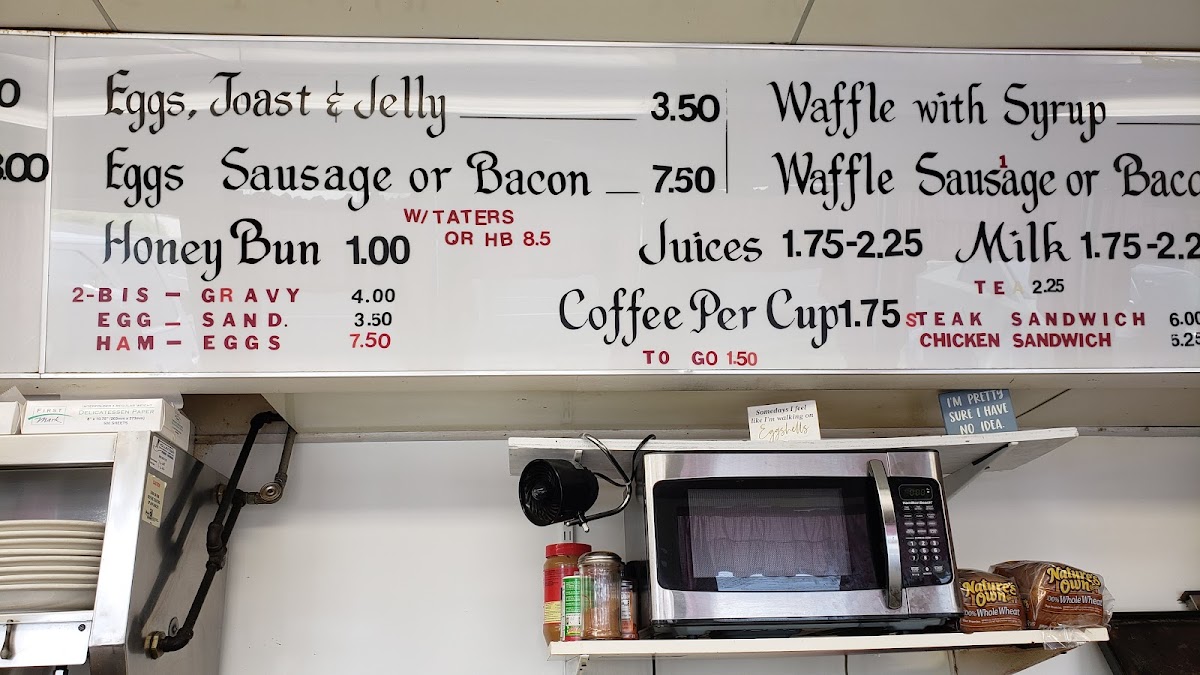 0
8.00
Eggs, Toast & Jelly 3.50
Eggs Sausage or Bacon 7.50
W/ TATERS
OR HB 8.5
Honey Bun 1.00
2-BIS - GRAVY 4.00
EGG - SAND. 3.50
HAM - EGGS 7.50
Waffle with Syrup
Waffle Sausage or Baco
1
Juices 1.75-2.25
Milk 1.75-2.2
TEA 2.25
Coffee Per Cup 1.75
TO GO 1.50
STEAK SANDWICH 6.00
CHICKEN SANDWICH 5.25
FIRST
Mark
DELICATESSEN PAPER
Somedays I feel
like I'm walking on
Eggshells
I'M PRETTY
SURE I HAVE
NO IDEA.
Nature's
Own
100% Whole Wheat
Nature's
Own
100% Whole Wheat